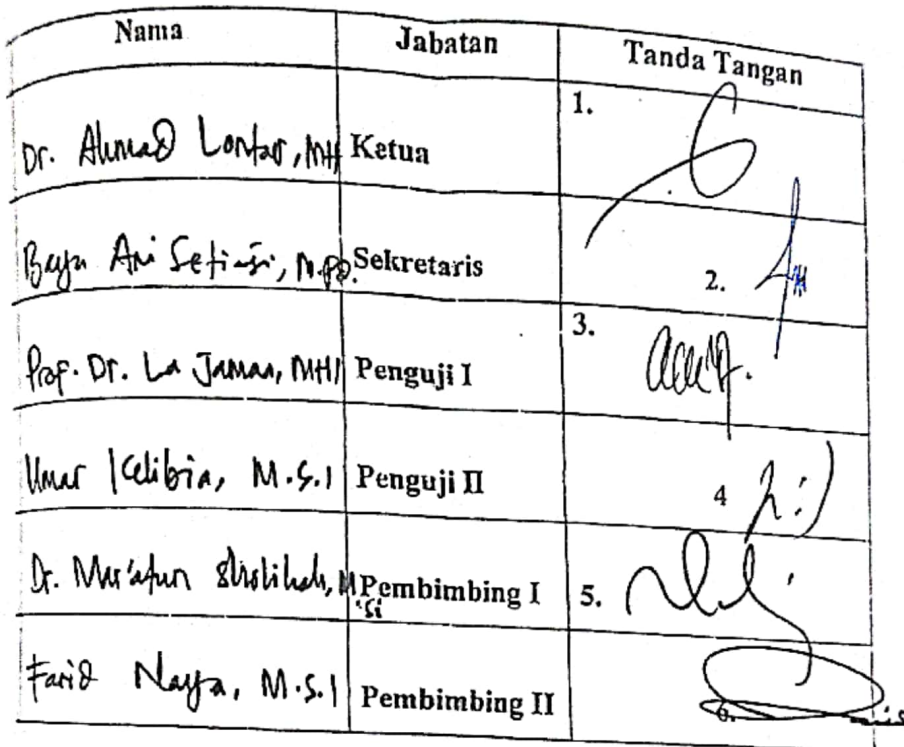 Nama Jabatan Tanda Tangan
Dr. Ahmad Lontor, MH Ketua 1.
Bayu Ari Setiasi, M.PD. Sekretaris 2.
Prof. Dr. La Jamaa, MHI Penguji I 3.
Umar Kelibia, M.S.I Penguji II 4
Dr. Mar'atun Sholihah, M.si Pembimbing I 5.
Farid Naya, M.S.I Pembimbing II 6.